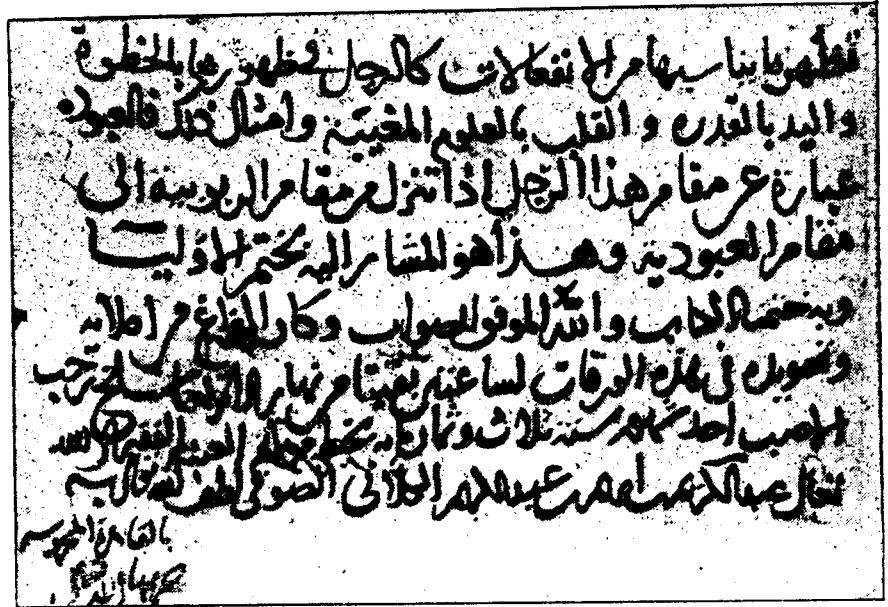 تظهر بما يناسبها من الانفعالات كالرجل في ظهورها بالخطوة
واليد بالقدرة والقلب بالعلوم المغيبة وامثال ذلك فالعبودية
عبارة عن مقام هذا الرجل اذا تنزل من مقام الربوبية الى
مقام العبودية وهذا هو المشار اليه بختم الاوليا
وبه ختمنا الكتاب والله الموفق للصواب وكان الفراغ من املائه
وتسويده في هذه الورقات لساعتين بقيتا من نهار سلخ رجب
احد شهور سنة ثلاث وثمانمايه بخط العبد الفقير الى الله
تعالى عبد الكريم بن ابراهيم بن عبد الكريم الصوفي لطف الله به
بالقاهرة المحروسه